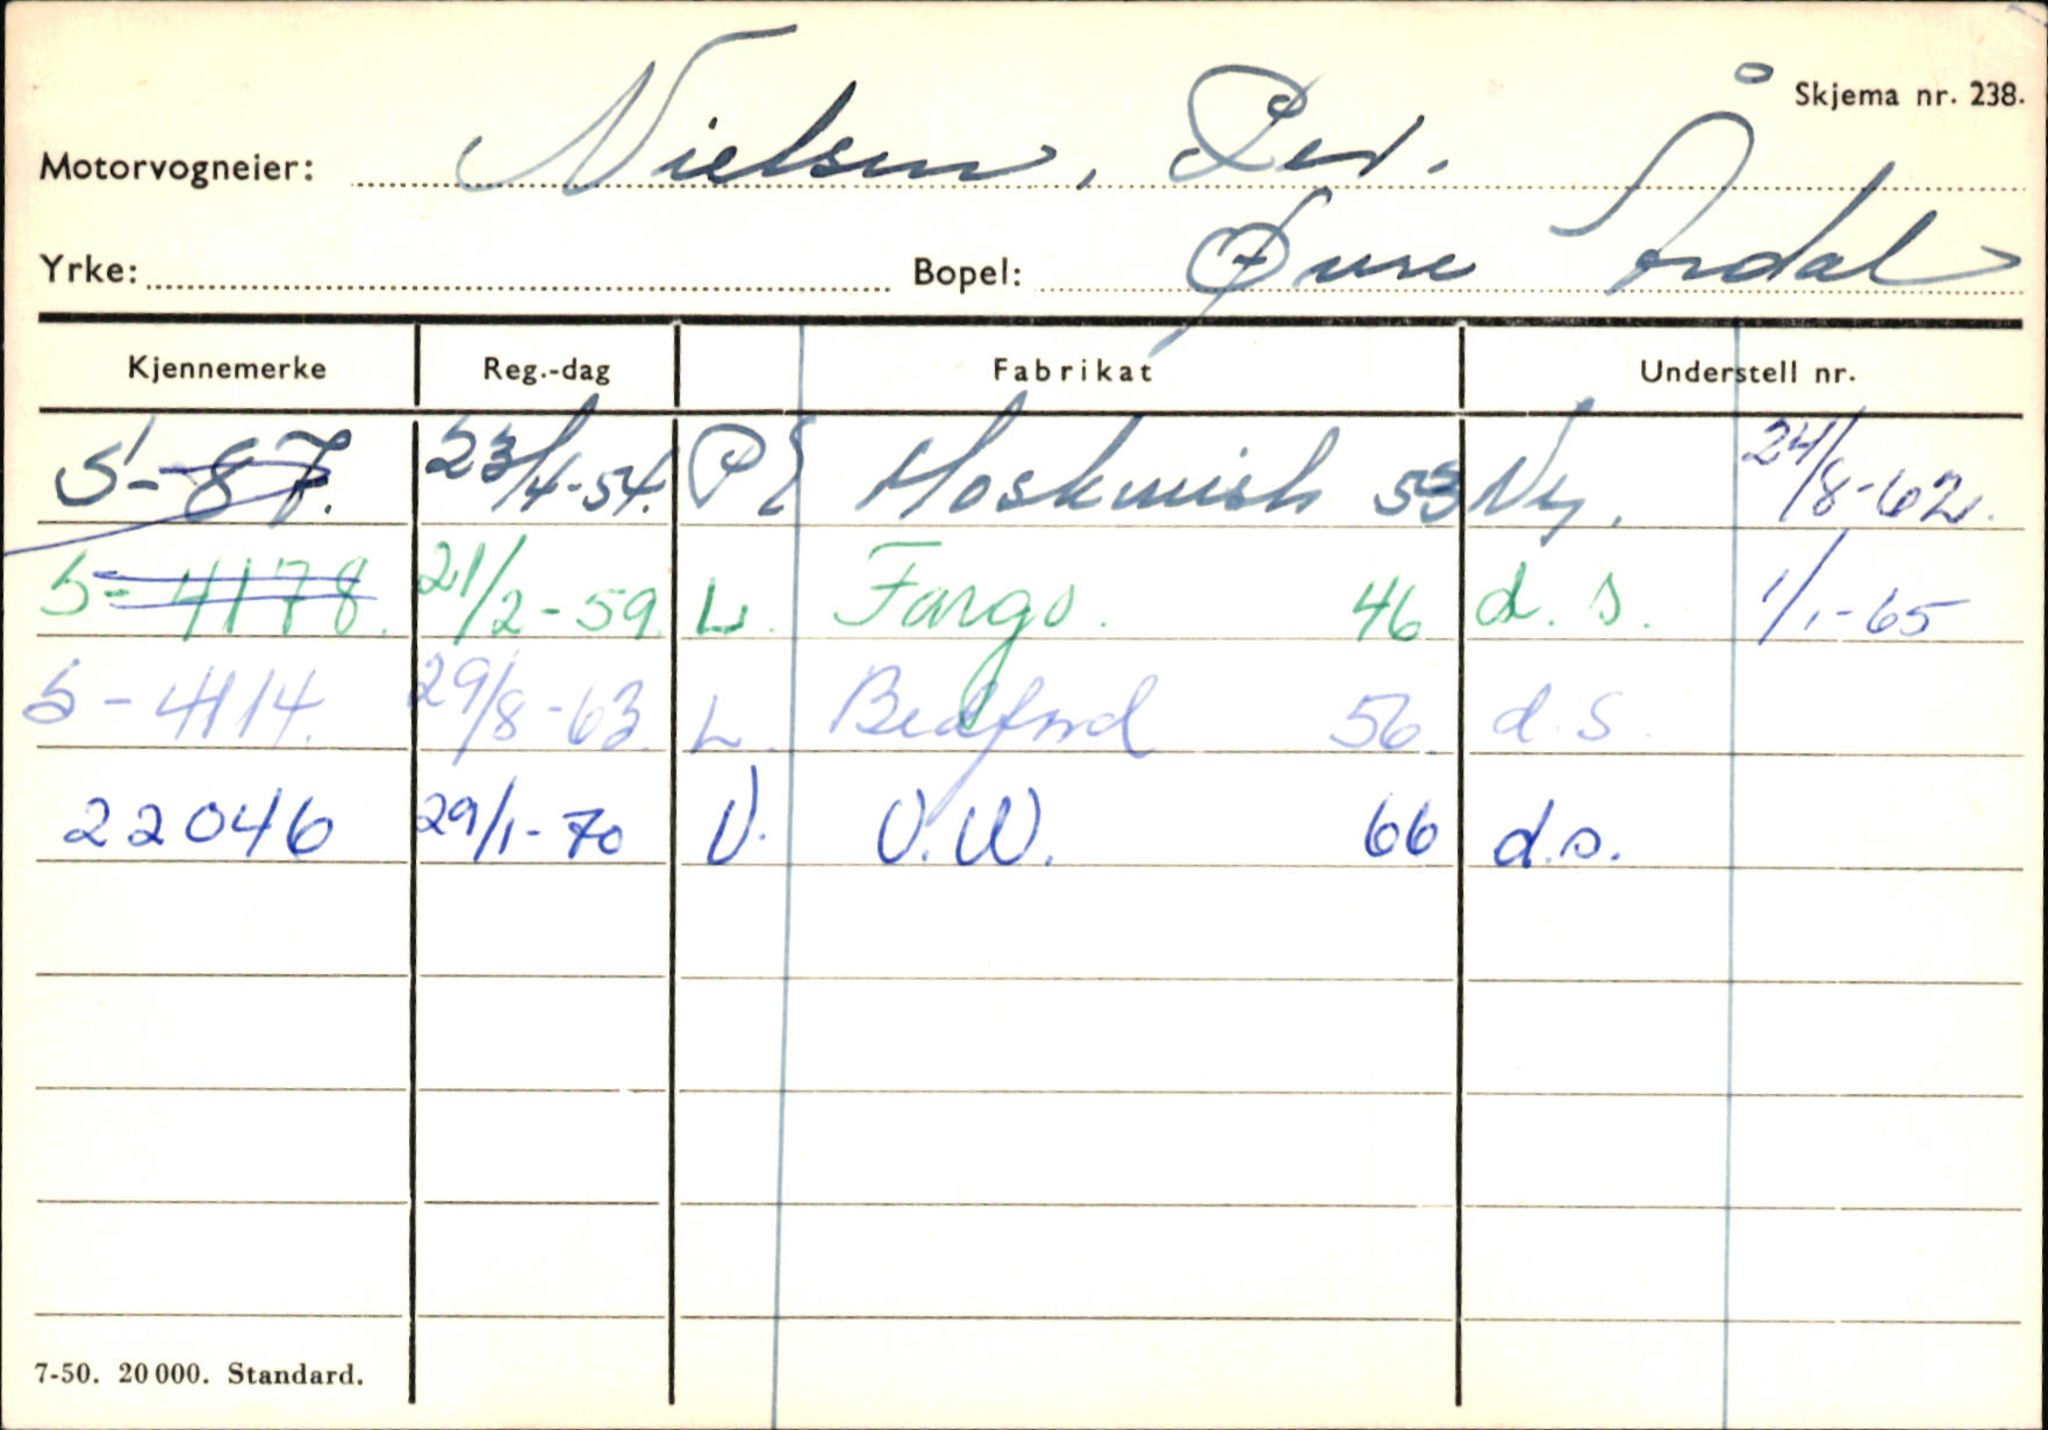 Skjema nr. 238.
Motorvogneier: Nielsen, Per.
Yrke: Bopel: Øvre Årdal
Kjennemerke Reg.-dag Fabrikat Understell nr.
S-87. 23/4-54. P Moskwish 53 Ny. 24/8-62.
S-4178. 21/2-59. L. Fargo. 46 d.s. 1/1-65
S-4114. 29/8-63. L. Bedford 56. d.s.
22046 29/1-70 V. V.W. 66 d.s.
7-50. 20 000. Standard.